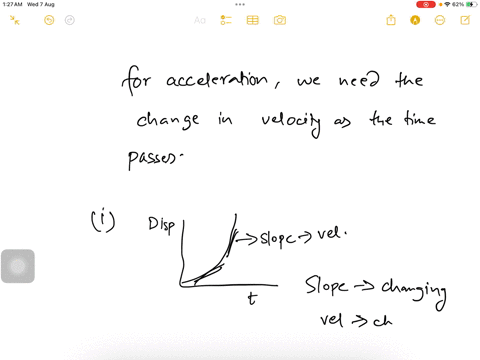 1:27 AM Wed 7 Aug
62%
Aa
for acceleration, we need the
change in velocity as the time
passes.
(i)
Disp
→ slope → vel.
t
Slope → changing
vel → ch